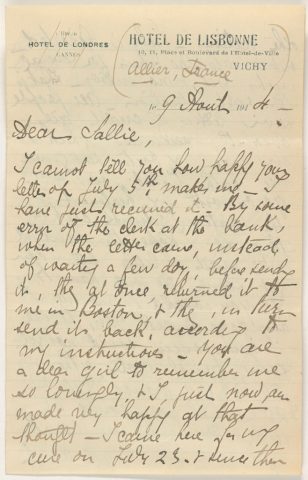 HOTEL DE LONDRES
CANNES
HOTEL DE LISBONNE
10, 11, Place et Boulevard de l'Hôtel-de-Ville
VICHY
(Allier, France
le 9 Août 1914-
Dear Sallie,
I cannot tell you how happy your
letter of July 5th makes me - I
have just received it - By some
error of the clerk at the bank,
when the letter came, instead
of waiting a few days before sending
it, they at once returned it to
me in Boston, & they, in turn
send its back, according to
my instructions - You are
a dear girl to remember me
so lovingly, & I, just now am
made very happy at that
thought - I came here for my
cure on July 23. & since then